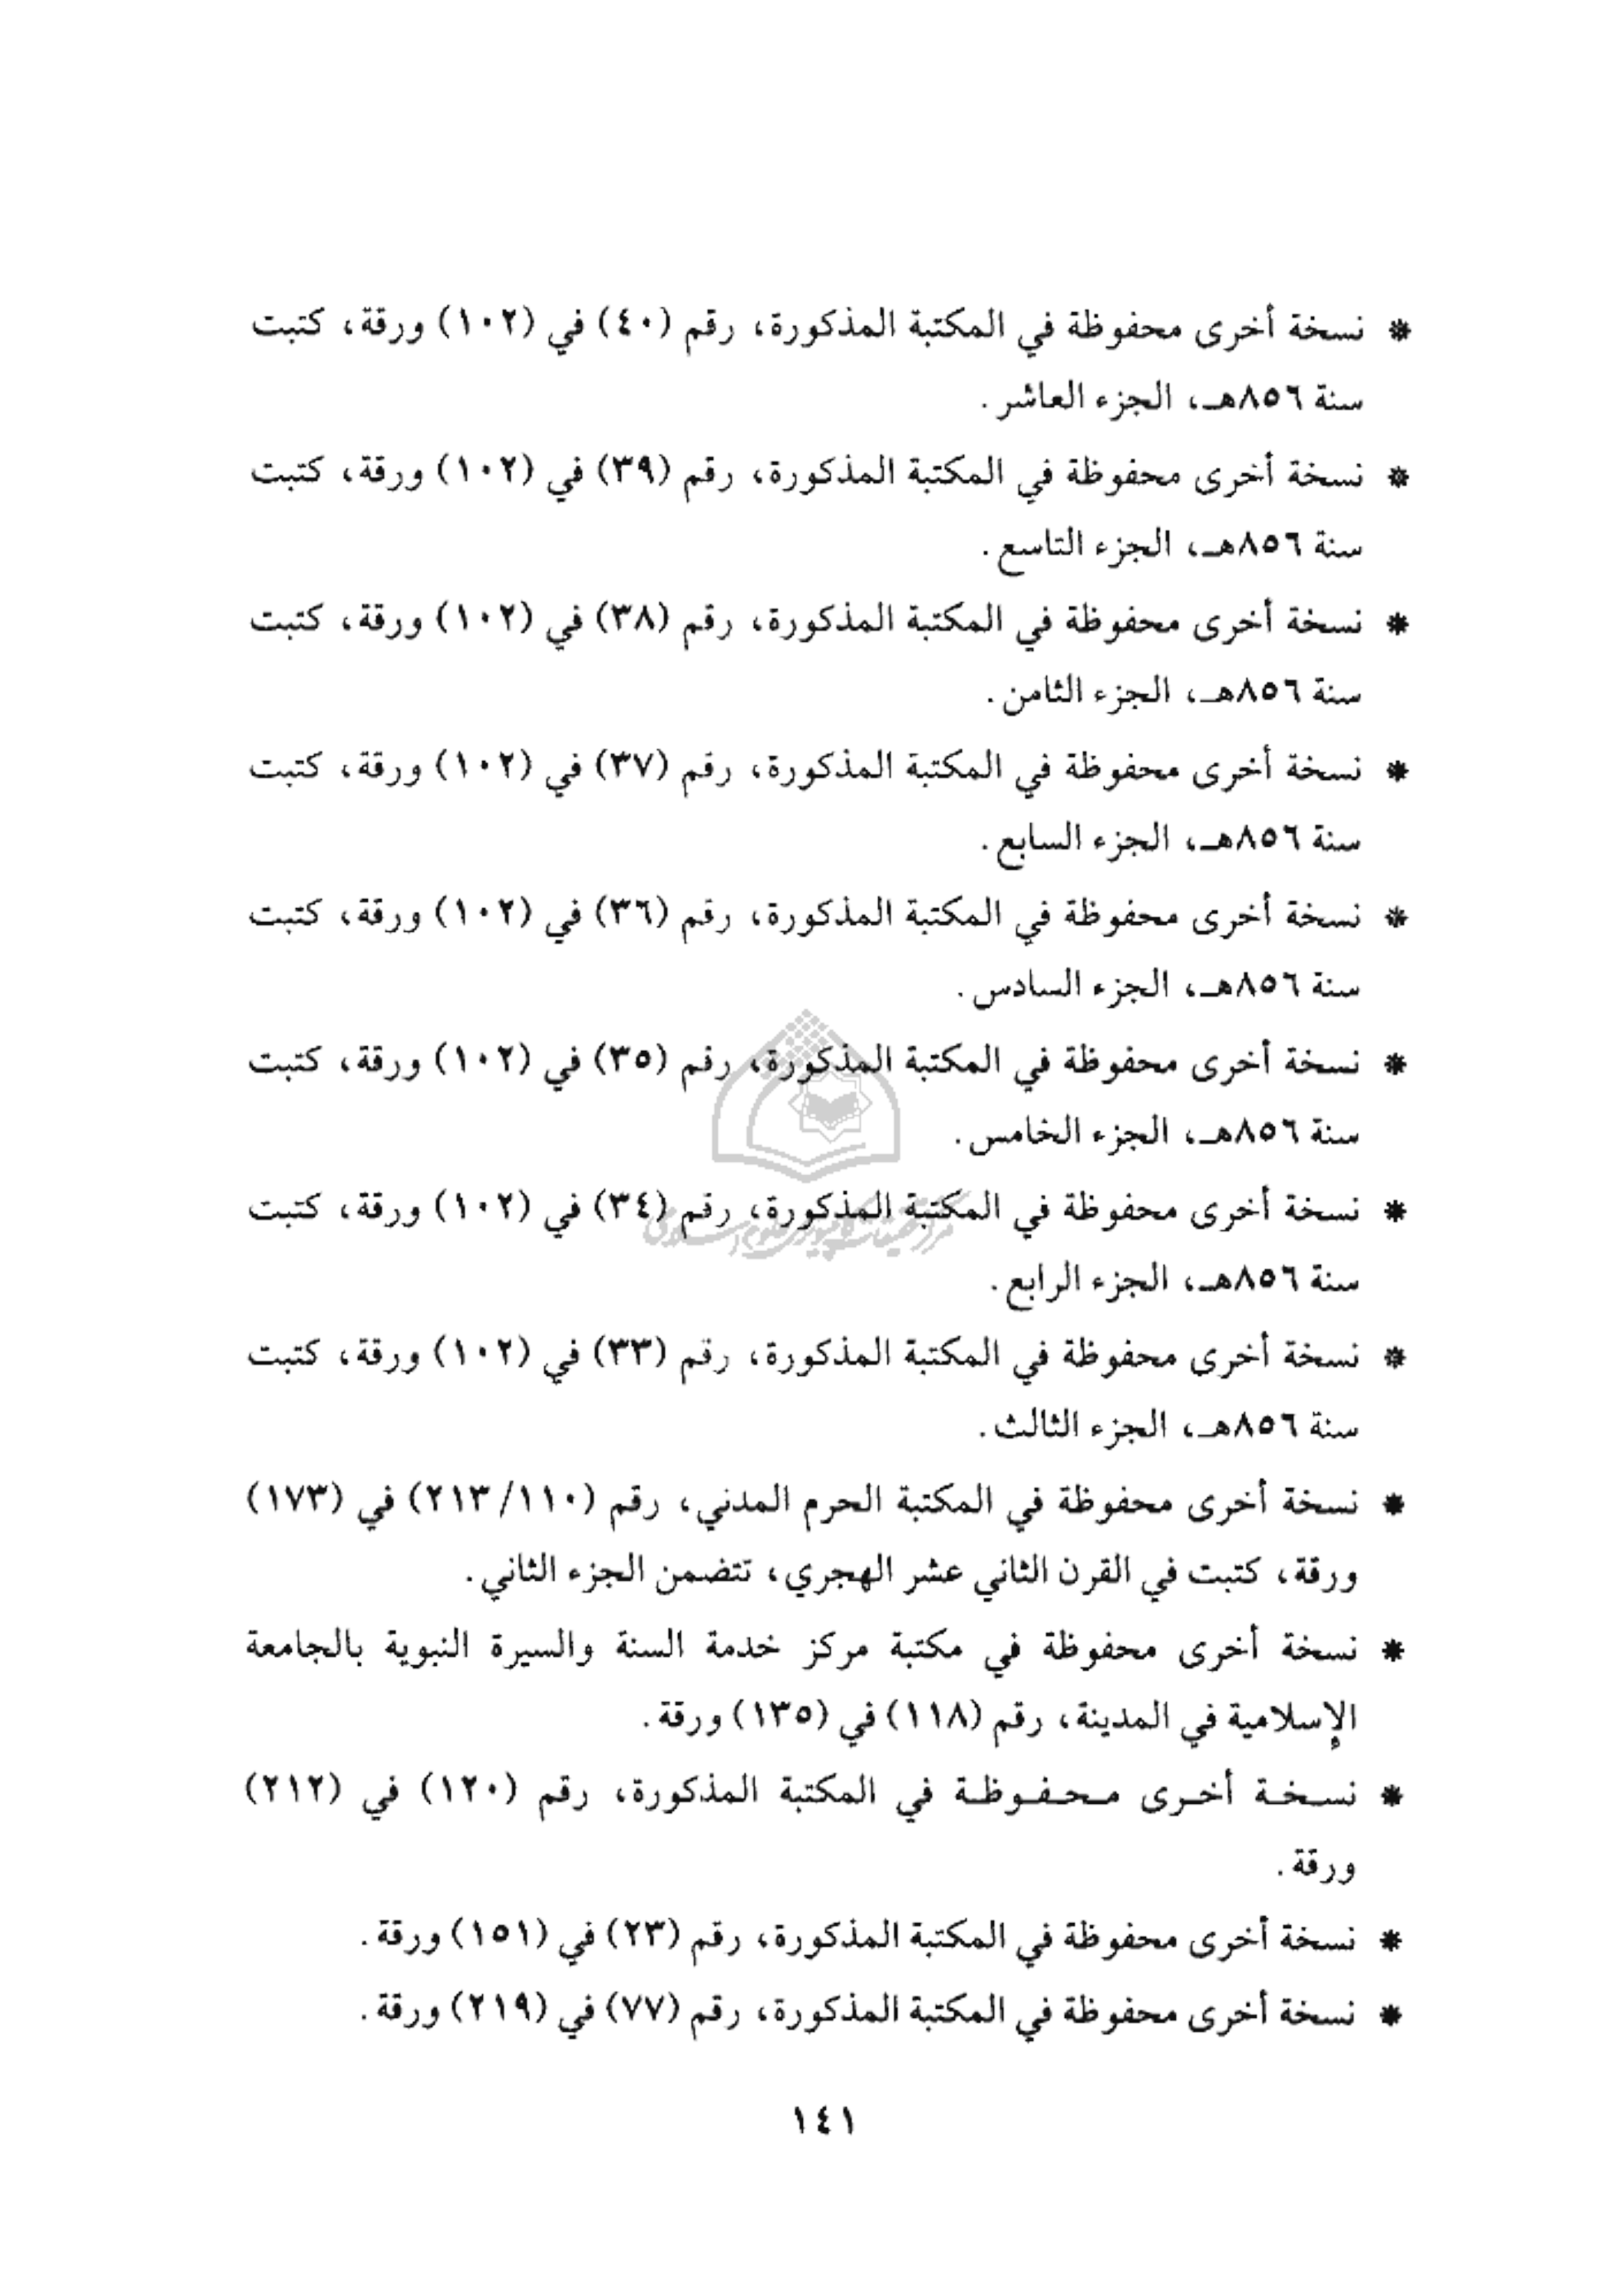 * نسخة أخرى محفوظة في المكتبة المذكورة، رقم (٤٠) في (١٠٢) ورقة، كتبت
سنة ٨٥٦هـ، الجزء العاشر.
* نسخة أخرى محفوظة في المكتبة المذكورة، رقم (٣٩) في (١٠٢) ورقة، كتبت
سنة ٨٥٦هـ، الجزء التاسع.
* نسخة أخرى محفوظة في المكتبة المذكورة، رقم (٣٨) في (١٠٢) ورقة، كتبت
سنة ٨٥٦هـ، الجزء الثامن.
* نسخة أخرى محفوظة في المكتبة المذكورة، رقم (٣٧) في (١٠٢) ورقة، كتبت
سنة ٨٥٦هـ، الجزء السابع.
* نسخة أخرى محفوظة في المكتبة المذكورة، رقم (٣٦) في (١٠٢) ورقة، كتبت
سنة ٨٥٦هـ، الجزء السادس.
* نسخة أخرى محفوظة في المكتبة المذكورة، رقم (٣٥) في (١٠٢) ورقة، كتبت
سنة ٨٥٦هـ، الجزء الخامس.
* نسخة أخرى محفوظة في المكتبة المذكورة، رقم (٣٤) في (١٠٢) ورقة، كتبت
سنة ٨٥٦هـ، الجزء الرابع.
* نسخة أخرى محفوظة في المكتبة المذكورة، رقم (٣٣) في (١٠٢) ورقة، كتبت
سنة ٨٥٦هـ، الجزء الثالث.
* نسخة أخرى محفوظة في المكتبة الحرم المدني، رقم (٢١٣/١١٠) في (١٧٣)
ورقة، كتبت في القرن الثاني عشر الهجري، تتضمن الجزء الثاني.
* نسخة أخرى محفوظة في مكتبة مركز خدمة السنة والسيرة النبوية بالجامعة
الإسلامية في المدينة، رقم (١١٨) في (١٣٥) ورقة.
* نسخة أخرى محفوظة في المكتبة المذكورة، رقم (١٢٠) في (٢١٢)
ورقة.
* نسخة أخرى محفوظة في المكتبة المذكورة، رقم (٢٣) في (١٥١) ورقة.
* نسخة أخرى محفوظة في المكتبة المذكورة، رقم (٧٧) في (٢١٩) ورقة.
١٤١